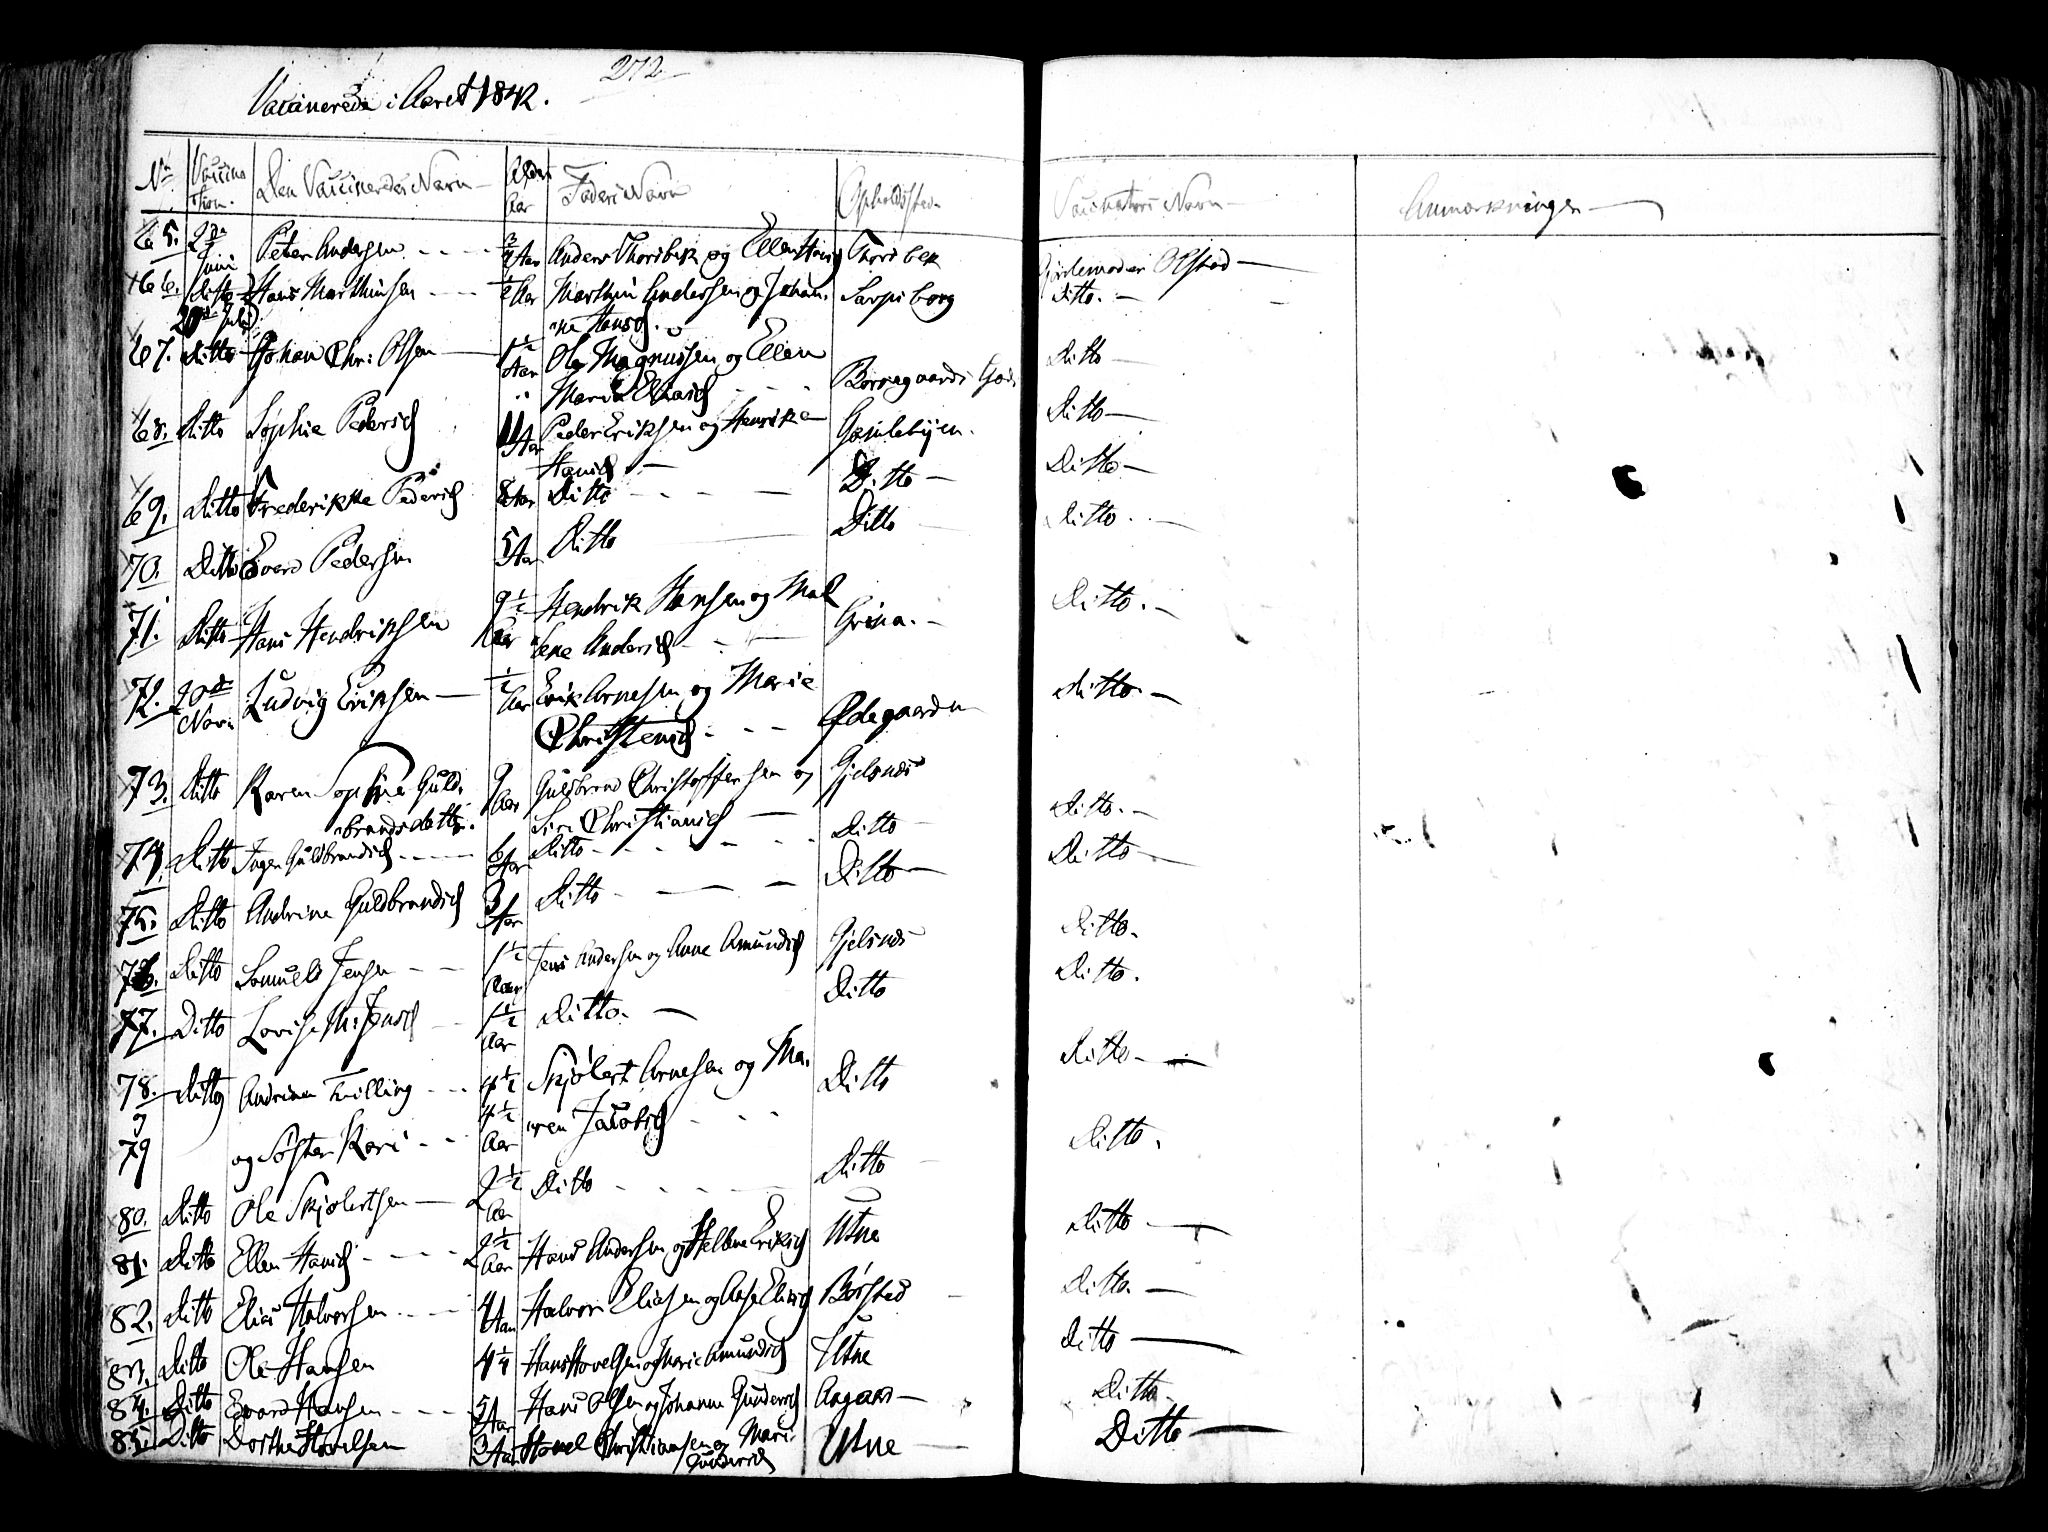 272
Vaccinerede i Aaret 1842.
No Vaccina Den Vaccineredes Navn Alder Faders Navn Opholdssted Vaccinateurs Navn Anmærkninger
thion. Aar
65. 2den Juni Peter Andersen 3/4 Aar Anders Thorsbek og Ellen Hansd Thorsbek Jordemoder Olstad
66. Ditto Hans Marthinsen 1/2 Aar Marthin Andersen og Johan- Sarpsborg Ditto.
20de Juli ne Hansd.
67. Ditto Johan Chr: Olsen 1 1/2 Aar Ole Magnussen og Ellen Ditto
Maria Eliasd Borregaards Gods
68. Ditto Sophie Pedersd 11 Aar Peder Eriksen og Henrikke Gamlebyen. Ditto
Hansd
69. Ditto Frederikke Pedersd 8 Aar Ditto Ditto Ditto
70. Ditto Evard Pedersen 5 Aar Ditto Ditto Ditto.
71. Ditto Hans Hendriksen 9 1/2 Aar Hendrik Hansen og Mal Grina. Ditto.
lene Andersd
72. 20de Novr Ludvig Eriksen 1/2 Aar Erik Arnesen og Marie Ditto.
Christensd Ødegaarden
73. Ditto Karen Sophie Guld- 9 Aar Guldbrand Christoffersen og Gjelsnæs Ditto.
brandsdatter. Siri Christiansd
74. Ditto Inger Guldbrandsd 6 Aar Ditto Ditto Ditto
75. Ditto Andrine Guldbrandsd 3 Aar Ditto Ditto Ditto.
76. Ditto Samuel Jensen 1 1/2 Aar Jens Andersen og Anne Amundsd Gjelsnæs Ditto.
77. Ditto Lovise Jensd 1 1/2 Aar Ditto. Ditto Ditto
78. Ditto Andrine Tvilling 4 1/2 Skjølert Arnesen og Ma- Ditto Ditto.
79 og Søster Kari 4 1/2 Aar ren Jacobsd
80. Ditto Ole Skjølertsen 2 1/2 Aar Ditto Ditto Ditto
81. Ditto Ellen Hansd 2 1/2 Aar Hans Andersen og Helene Eriksd Utne Ditto.
82. Ditto Elias Halvorsen 4 Aar Halvor Eliasen og Aase Eliasd Børstad Ditto
83. Ditto Ole Hansen 4 1/4 Hans Hovelsen og Marie Amundsd Utne Ditto
84. Ditto Evard Hansen 5 Aar Hans Olsen og Johanne Gundersd Aagaard Ditto
85. Ditto Dorthe Hovelsen 3 Aar Hovel Christiansen og Mari Utne
Gundersd